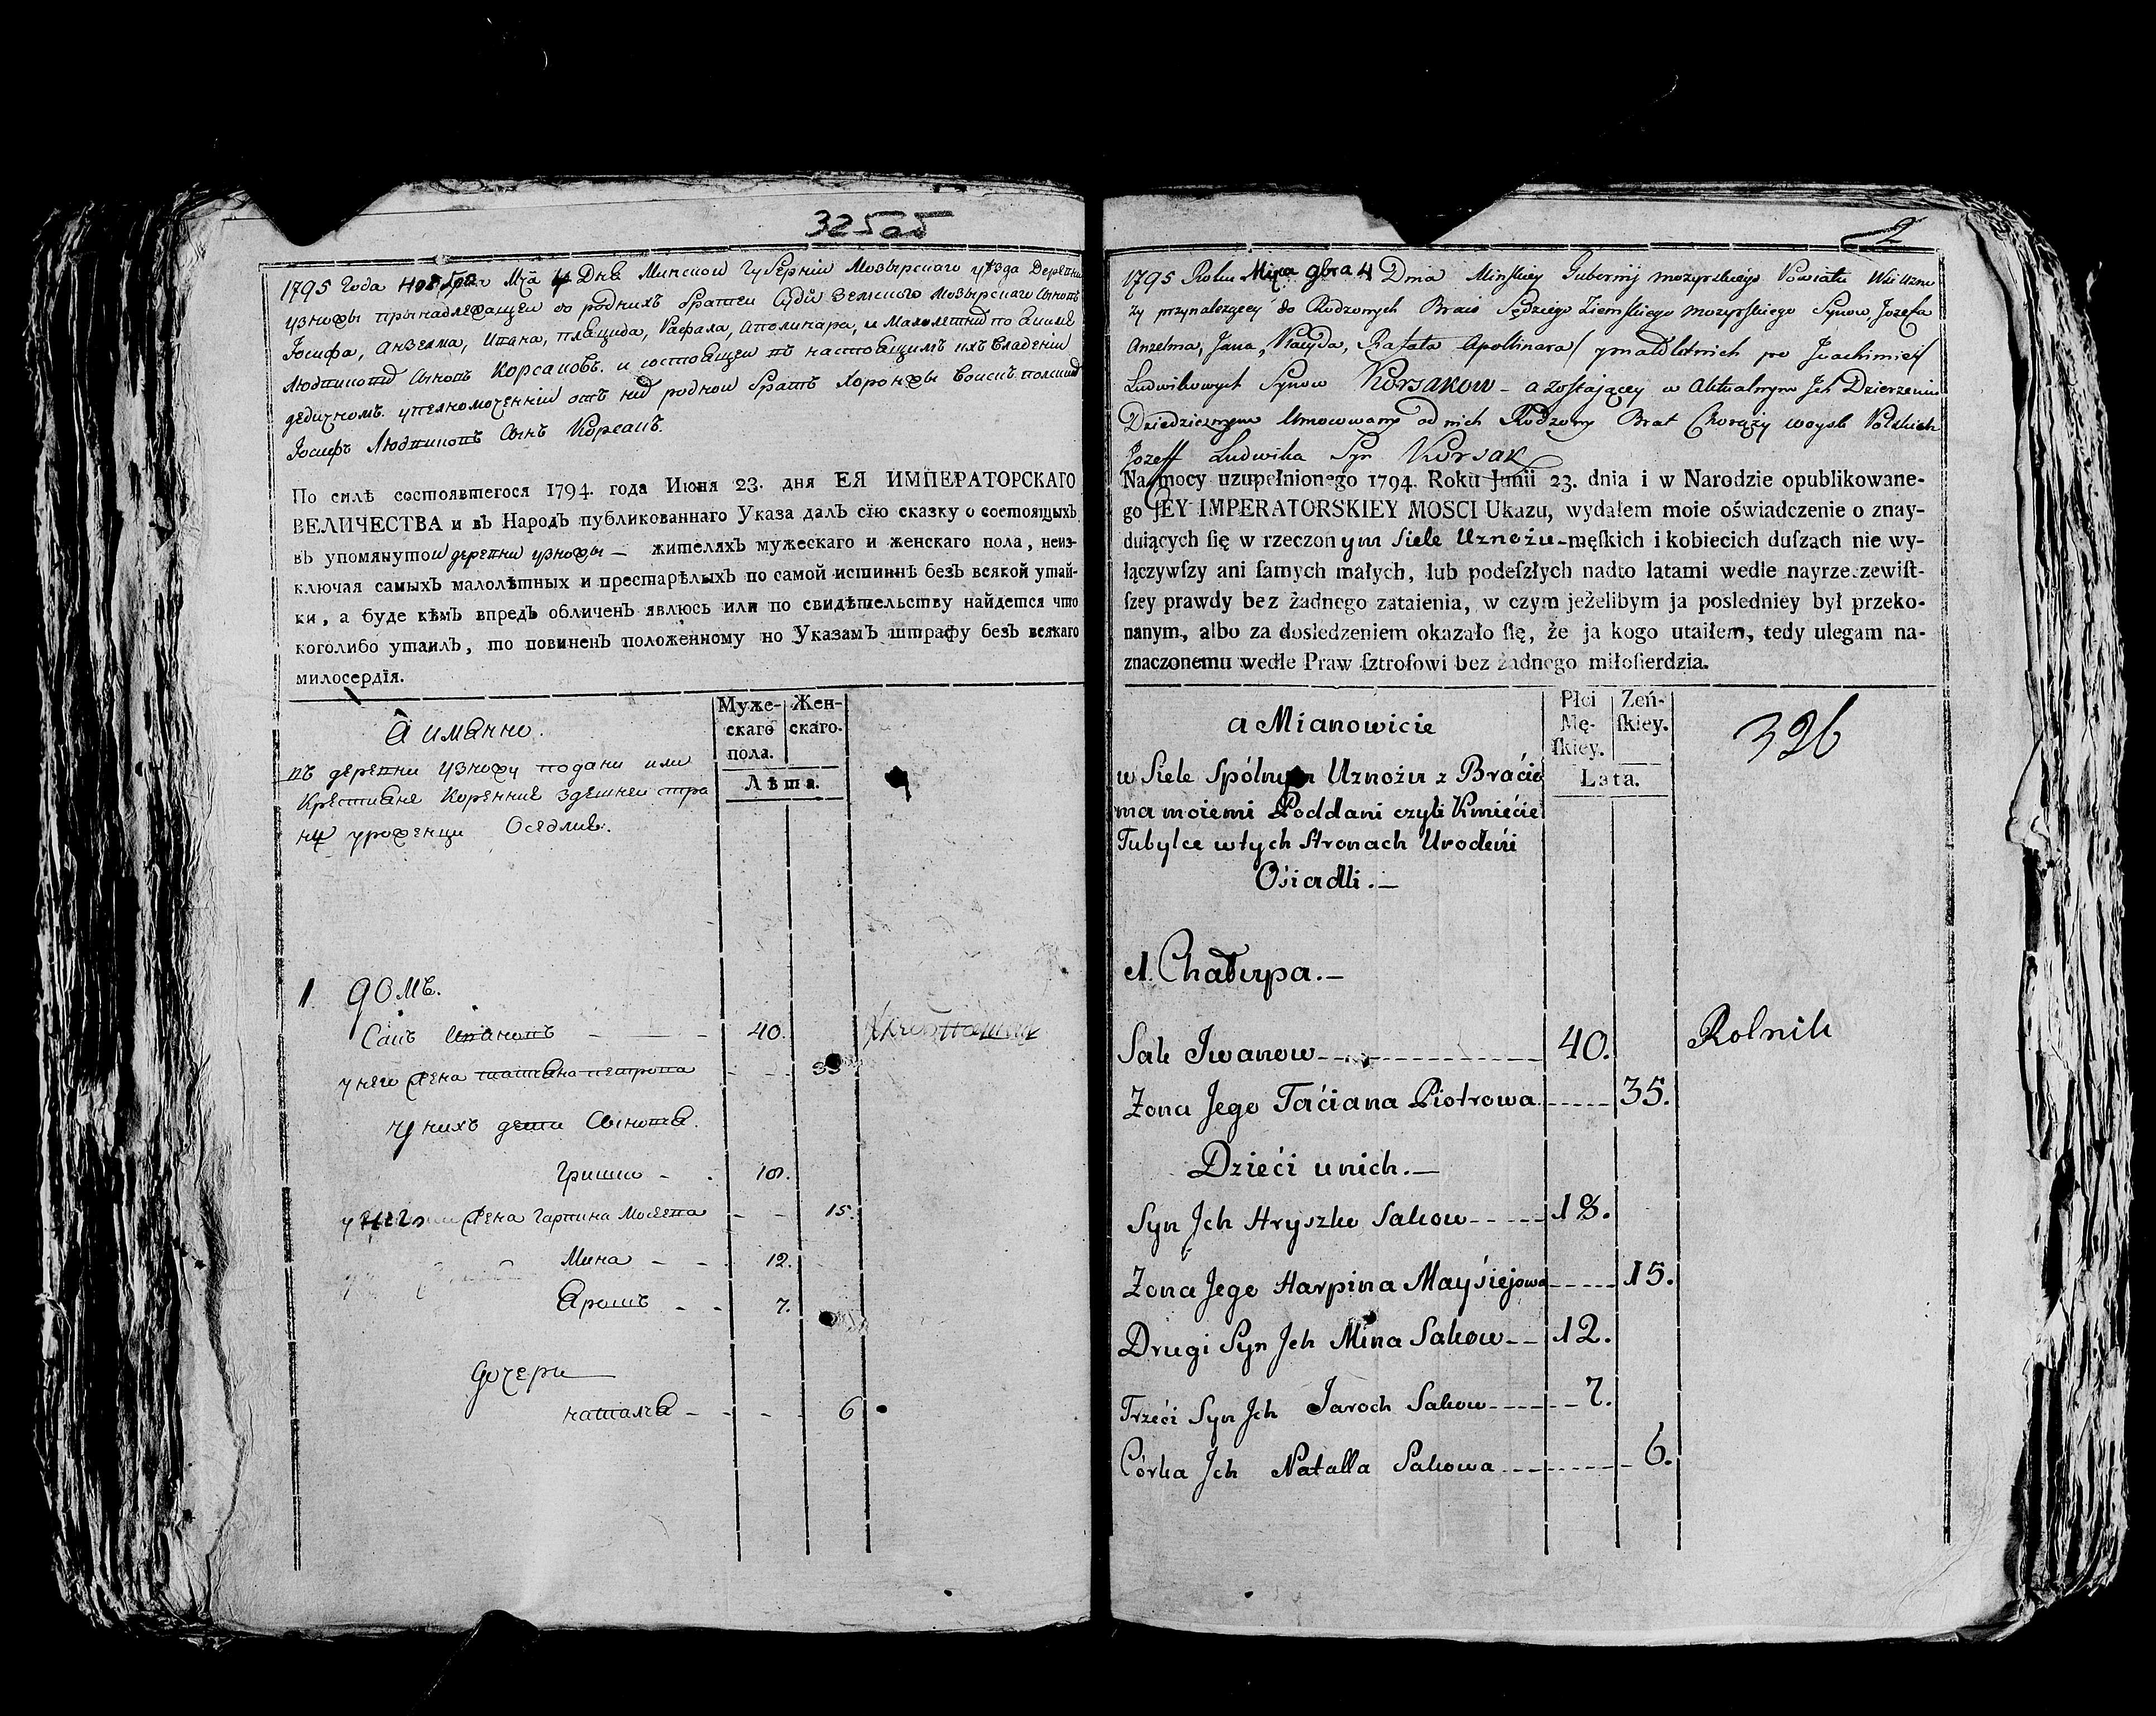 325об
1795 года Ноября Мца 4 Днѣ Минской губерніи Мозырскаго уѣзда Деревни
узножы принадлежащей до роднихъ братей судіи земского Мозырского сыновъ
Іосифа, Анзелма, Ивана, плацида, Рафала, Аполинара, и Малолетнихъ по
Людвиковихъ сыновъ Корсаковъ. и состоящей въ настоящимъ ихъ владеніи
дедичномъ. уполномоченній отъ нихъ родной братъ Хоронжы воискъ полскихъ
Іосифъ Людвиковъ сынъ Корсакъ.
По силѣ состоявшегося 1794. года Июня 23. дня ЕЯ ИМПЕРАТОРСКАГО
ВЕЛИЧЕСТВА и въ Народъ публикованнаго Указа далъ сїю сказку о состоящыхъ
въ упомянутой деревни узножы — жителяхъ мужескаго и женскаго пола, неиз-
ключая самыхъ малолѣтныхъ и престарѣлыхъ по самой истиннѣ безъ всякой утай-
ки, а буде кѣмъ впредь обличенъ явлюсь или по свидѣтельству найдется что
коголибо утаилъ, то повиненъ положенному по Указамъ штрафу безъ всякаго
милосердїя.
А имянно.
Муже-
скаго
пола.
Жен-
скаго.
Лѣта.
въ деревни узножу подани или
Крестиане Коренние здешней стра
ны уроженци Оседлие.
1. домъ.
Сакъ Ивановъ — 40.
у него жена татьяна петрова - - 35
У нихъ дети Сынов
гришко - . 18.
у него жена гарпина Мосеева - - 15.
Мина - - 12.
Ярошъ - - 7.
дочери
наталя - - - - 6
2
1795 Roku Mięca gbra 4 Dnia Minskiey Gubernij mozyrskiego Powiatu Wsi Uzno
ży przynalezącey do Rodzonych Braci Sędziego Ziemskiego mozyrskiego Synow, Jozefa
Anzelma, Jana, Placyda, Rafała Apollinara / ymałoletnich po Joachimie /
Ludwikowych Synow Korsakow - a zostającey w Aktualnym Jch Dzierzeniu
Dziedzicznym Umocowany od nich Rodzony Brat Chorąży woysk Polskich
Jozeff Ludwika Syn Korsak
Na mocy uzupełnionego 1794. Roku Junii 23. dnia i w Narodzie opublikowane-
go JEY IMPERATORSKIEY MOSCI Ukazu, wydałem moie oświadczenie o znay-
duiących ſię w rzeczonym Siele Uznożu-męſkich i kobiecich duſzach nie wy-
łączywſzy ani ſamych małych, lub podeſzłych nadto latami wedle nayrzeczewiſt-
ſzey prawdy bez żadnego zataienia, w czym jeżelibym ja posledniey był przeko-
nanym, albo za dosledzeniem okazało ſię, że ja kogo utaiłem, tedy ulegam na-
znaczonemu wedle Praw ſztrofowi bez żadnego miłoſierdzia.
a Mianowicie
Płci
Mę-
ſkiey.
Zeń-
ſkiey.
Lata.
326
w Siele Spólnym Uznożu z Bracio
ma moiemi Poddani czyli Kmiécie
Tubylce w tych Stronach Urodeńi
Ośiadli.—
1. Chałupa.—
Sak Jwanow - - - 40. Rolnik
Zona Jego Taćiana Piotrowa. - - - 35.
Dzieći unich.—
Syn Jch Hryszko Sakow - - - 18.
Zona Jego Harpina Mayśiejowa - - - 15.
Drugi Syn Jch Mina Sakow - - 12.
Trzeći Syn Jch Jaroch Sakow - - - 7.
Córka Jch Natalla Sakowa - - - 6.